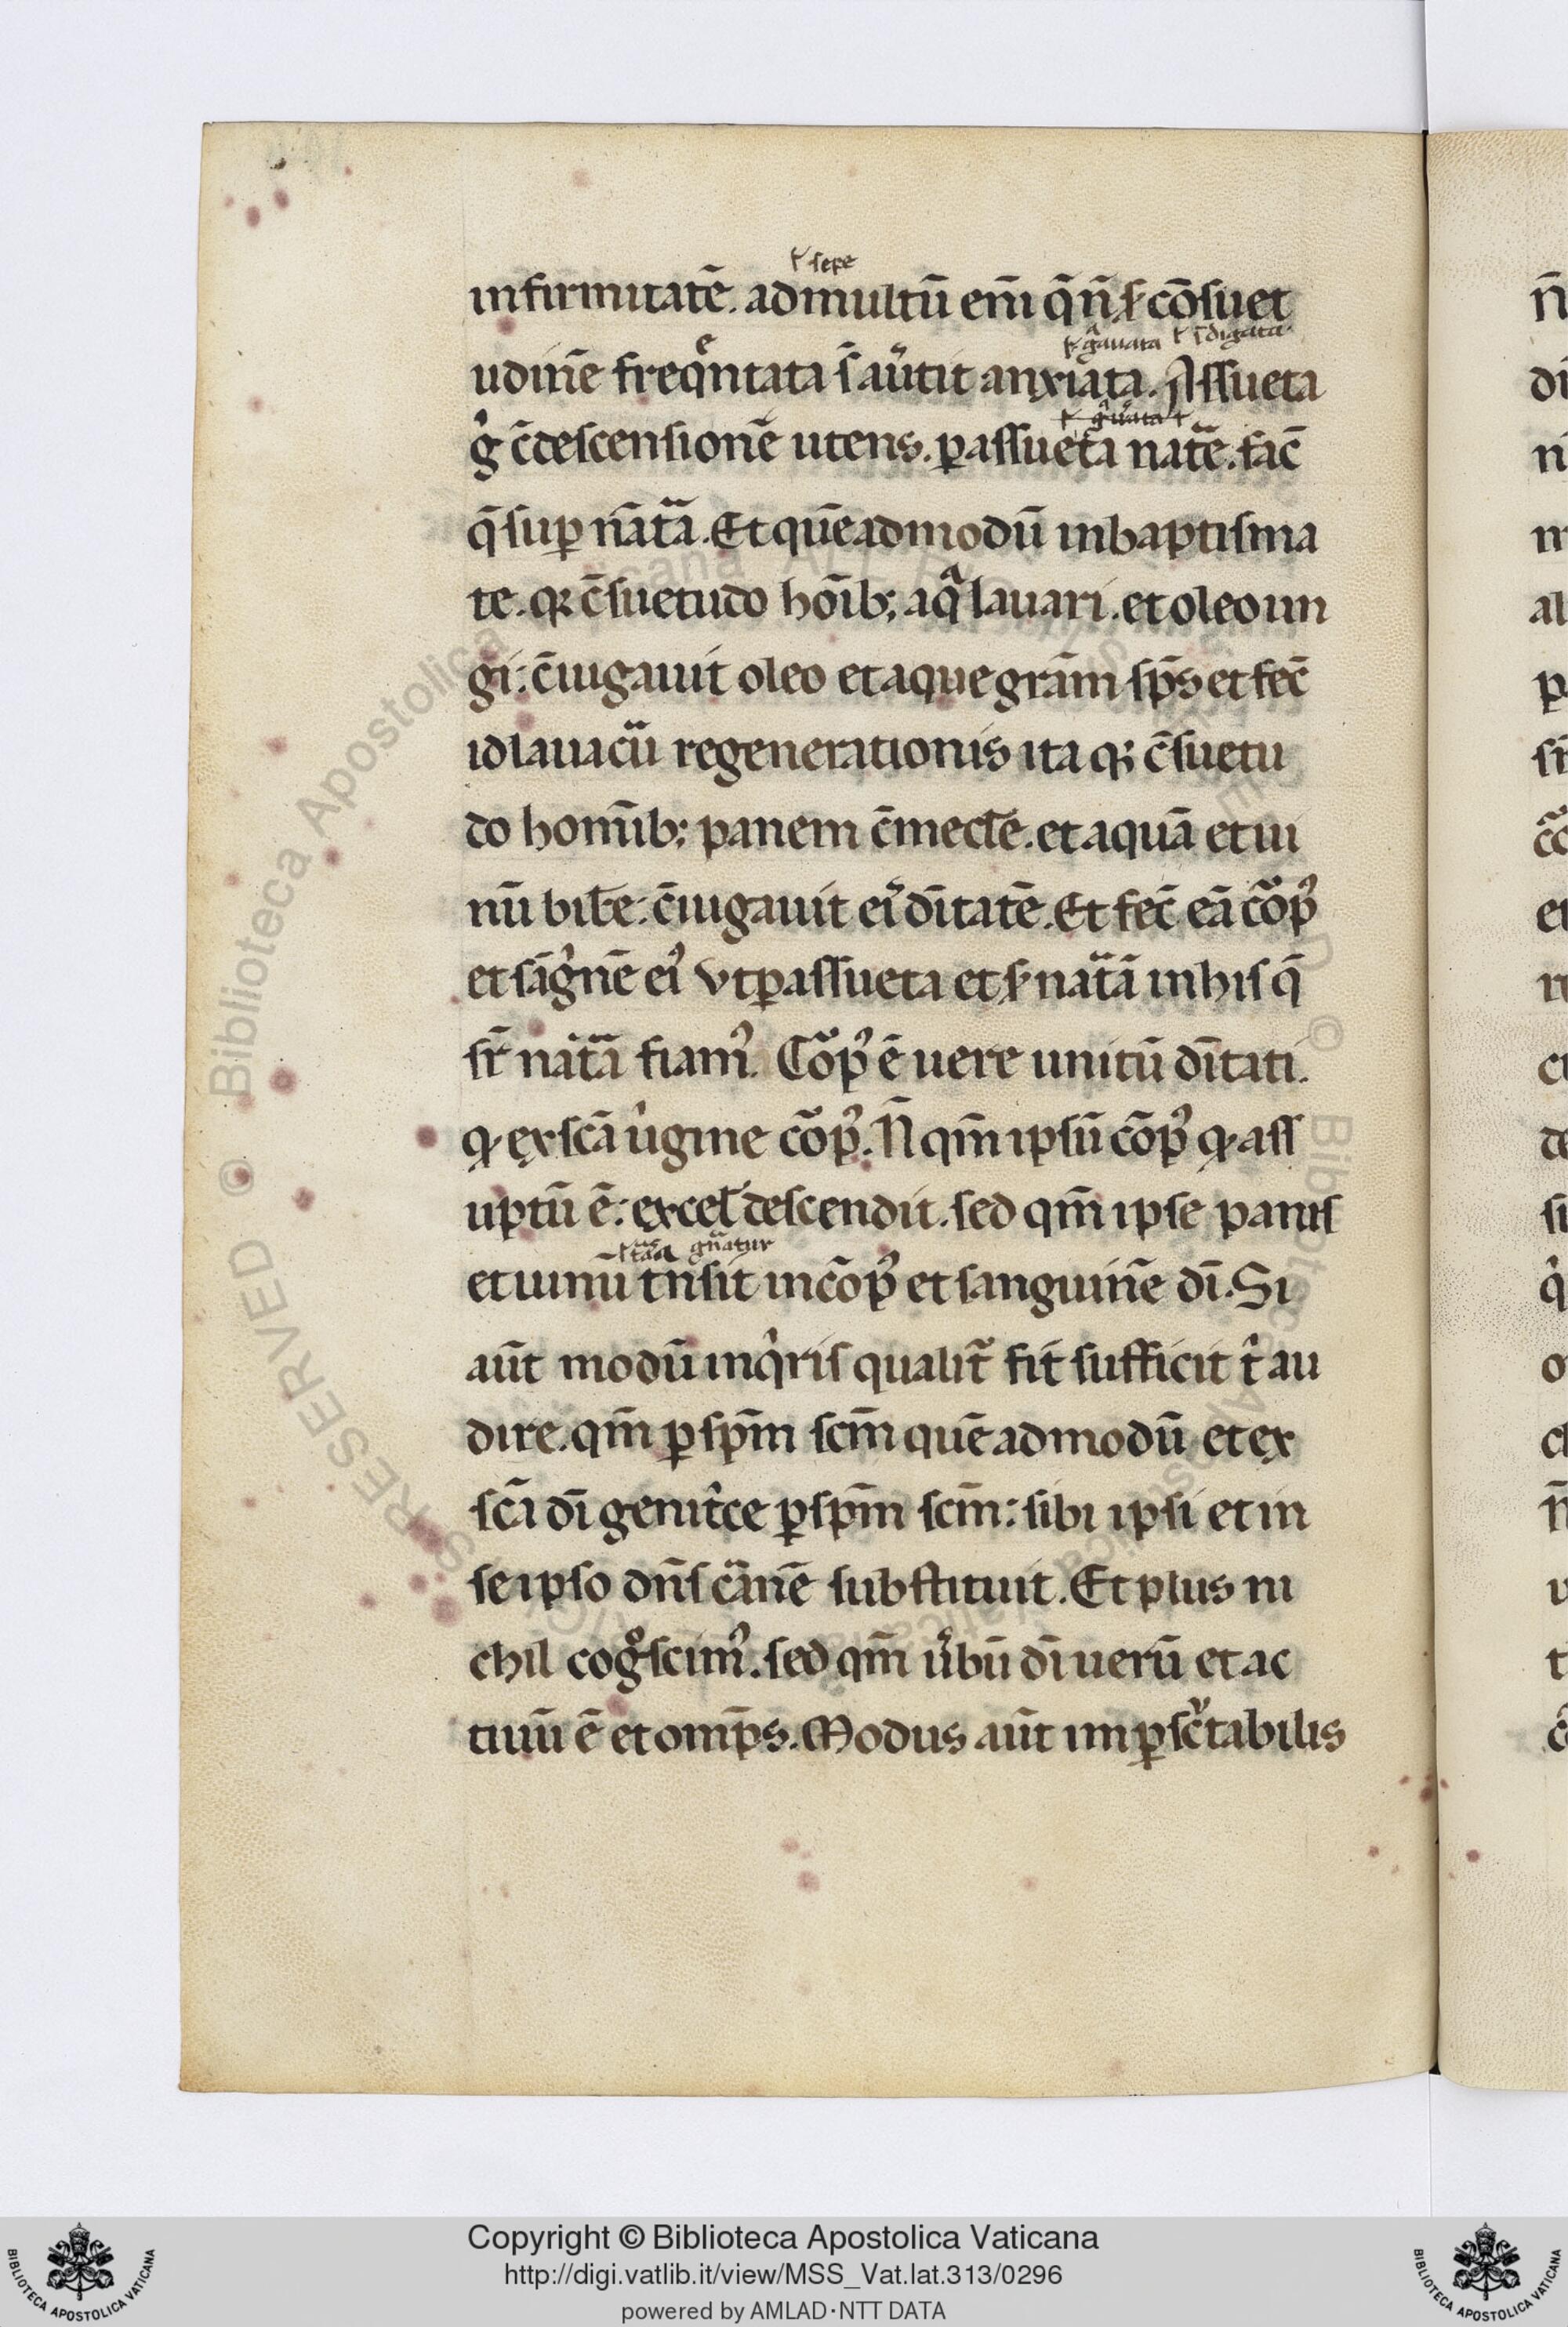 ꝉ sepe
infirmitatē. ad multū em̄ q̄ n̄ ẜ cōsuet
ꝉ gͣuata ꝉ idigata
udinē freqͤntata s̄ au̓tit anxiata. Assueta
gͥ c̄descensionē utens. ꝑ assueta nat̄e. fac̄
q̄ suꝑ nāt̄a. Et quēadmodū in baptisma
te. qꝛ c̄suetudo hōib; aqͣ lauari. et oleo un
gi: c̄iugauit oleo et aque grām sp̄s et fec̄
id lauacͧ regenerationis ita qꝛ c̄suetu
do homīb; panem c̄mecte. et aquā et ui
nū bibe: c̄iugauit ei᾽ dītatē. Et fec̄ eā cōp᾽
et sāgͥnē ei᾽ vt ꝑ assueta et ẜ natā in his q̄
sr̄ natā fiam᾽. Cōp᾽ ē uere unitū dītati.
ꝙ ex sc̄a uͥgine cōp᾽. N̄ qm̄ ipsū cōp᾽ ꝙ ass
uptū ē: ex cel̄ descendit. sed qm̄ ipse panis
et uinū tn̄sit in cōp᾽ et sanguinē dī. Si
aūt modū inqͥris qualit̄ fit sufficit tͥ au
dire. qm̄ ꝑ sp̄m sc̄m quēadmodū et ex
sc̄a dī genitͥce ꝑ sp̄m sc̄m: sibi ipsi et in
se ipso dn̄s cͣnē substituit. Et plus ni
chil cogͦscim᾽. sed qm̄ u̓bū dī uerū et ac
tiuū ē et omp̄s. Modus aūt imꝑscͧtabilis
Copyright © Biblioteca Apostolica Vaticana
http://digi.vatlib.it/view/MSS_Vat.lat.313/0296
powered by AMLAD·NTT DATA